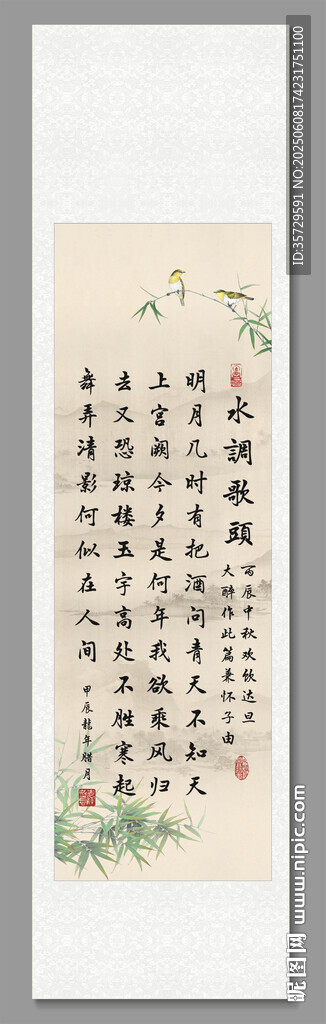 水調歌頭
丙辰中秋欢饮达旦
大醉作此篇兼怀子由
明月几时有把酒问青天不知天
上宫阙今夕是何年我欲乘风归
去又恐琼楼玉宇高处不胜寒起
舞弄清影何似在人间
甲辰龍年腊月
ID:35729591 NO:20250608174231751100
昵图网 www.nipic.com